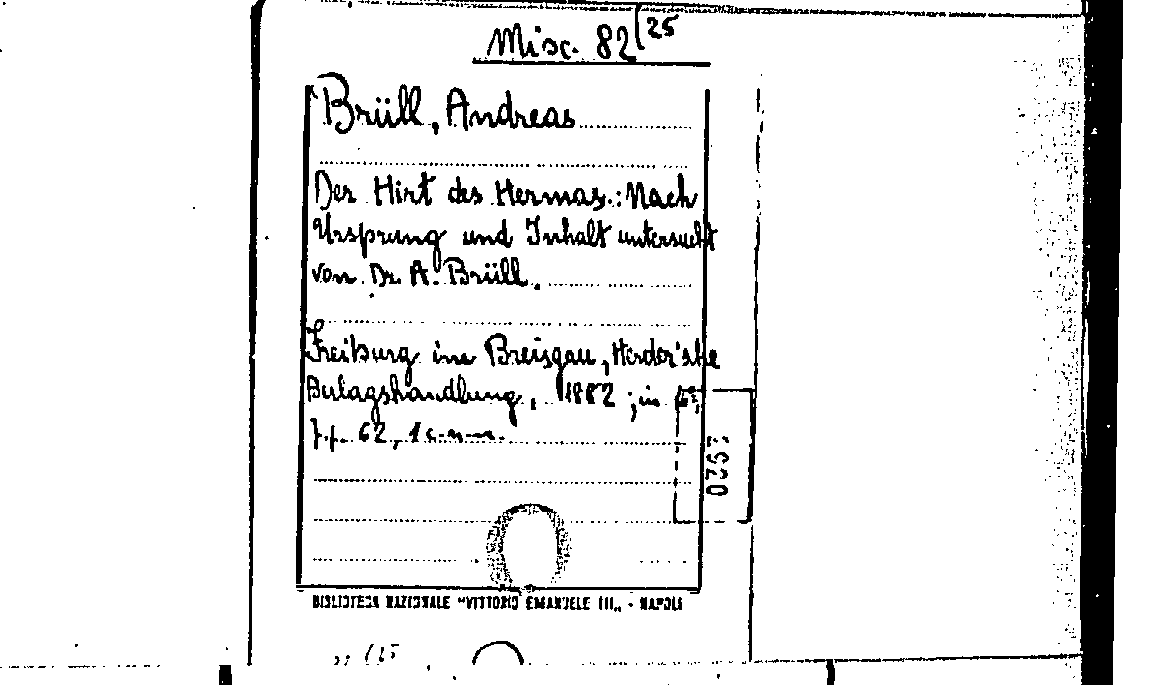 Misc. 82/25
Brüll, Andreas
Der Hirt des Hermas.: Nach
Ursprung und Inhalt untersucht
von Dr. A. Brüll.
Freiburg im Breisgau, Herder'sche
Verlagshandlung, 1882; in 8°,
pp. 62, 1 c.n.n.
BIBLIOTECA NAZIONALE "VITTORIO EMANUELE III„ - NAPOLI